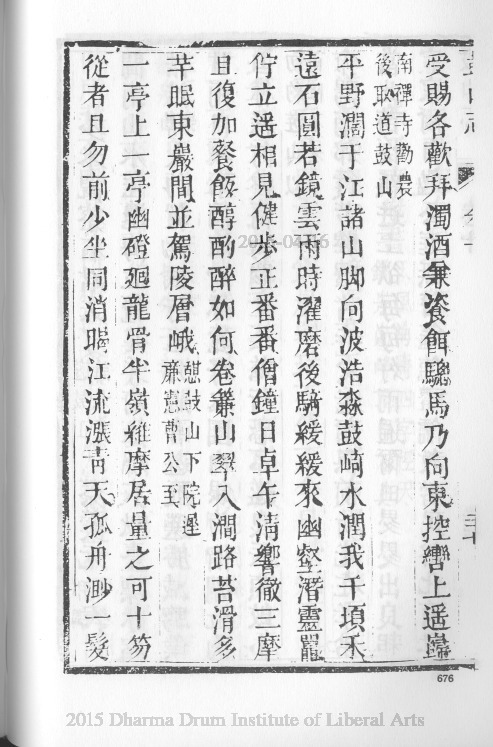 鼓山志 卷十 三十
受賜各歡拜濁酒兼餈餌驄馬乃向東控轡上遥巋
南禪寺勸農
後取道鼓山
平野濶于江諸山脚向波浩淼鼓崎水潤我千頃禾
遠石圓若鏡雲雨時濯磨後騎緩緩來幽壑潛靈鼉
佇立遥相見健步正番番僧鐘日卓午清響徹三摩
且復加餐飯醇酌醉如何卷簾山翠入澗路苔滑多
芉眠東巖間並駕陵層峨
憇鼓山下院遲
肅憲曹公至
一亭上一亭幽磴廻龍骨半嶺維摩居量之可十笏
從者且勿前少坐同消暍江流漲靑天孤舟渺一髮
676
2015 Dharma Drum Institute of Liberal Arts